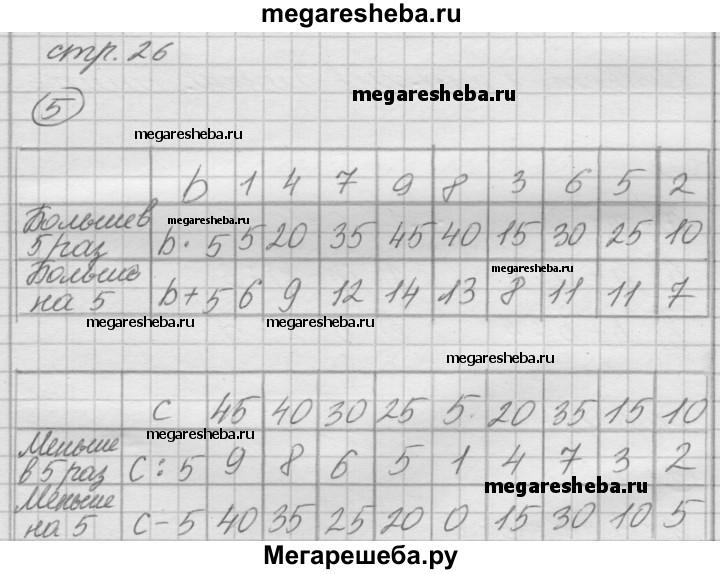 megaresheba.ru
стр. 26
megaresheba.ru
5
megaresheba.ru
b 1 4 7 9 8 3 6 5 2
megaresheba.ru
Больше в
5 раз b · 5 5 20 35 45 40 15 30 25 10
megaresheba.ru
Больше
на 5 b + 5 6 9 12 14 13 8 11 11 7
megaresheba.ru megaresheba.ru
megaresheba.ru
c 45 40 30 25 5 20 35 15 10
megaresheba.ru
Меньше
в 5 раз c : 5 9 8 6 5 1 4 7 3 2
megaresheba.ru
Меньше
на 5 c - 5 40 35 25 20 0 15 30 10 5
Мегарешеба.ру